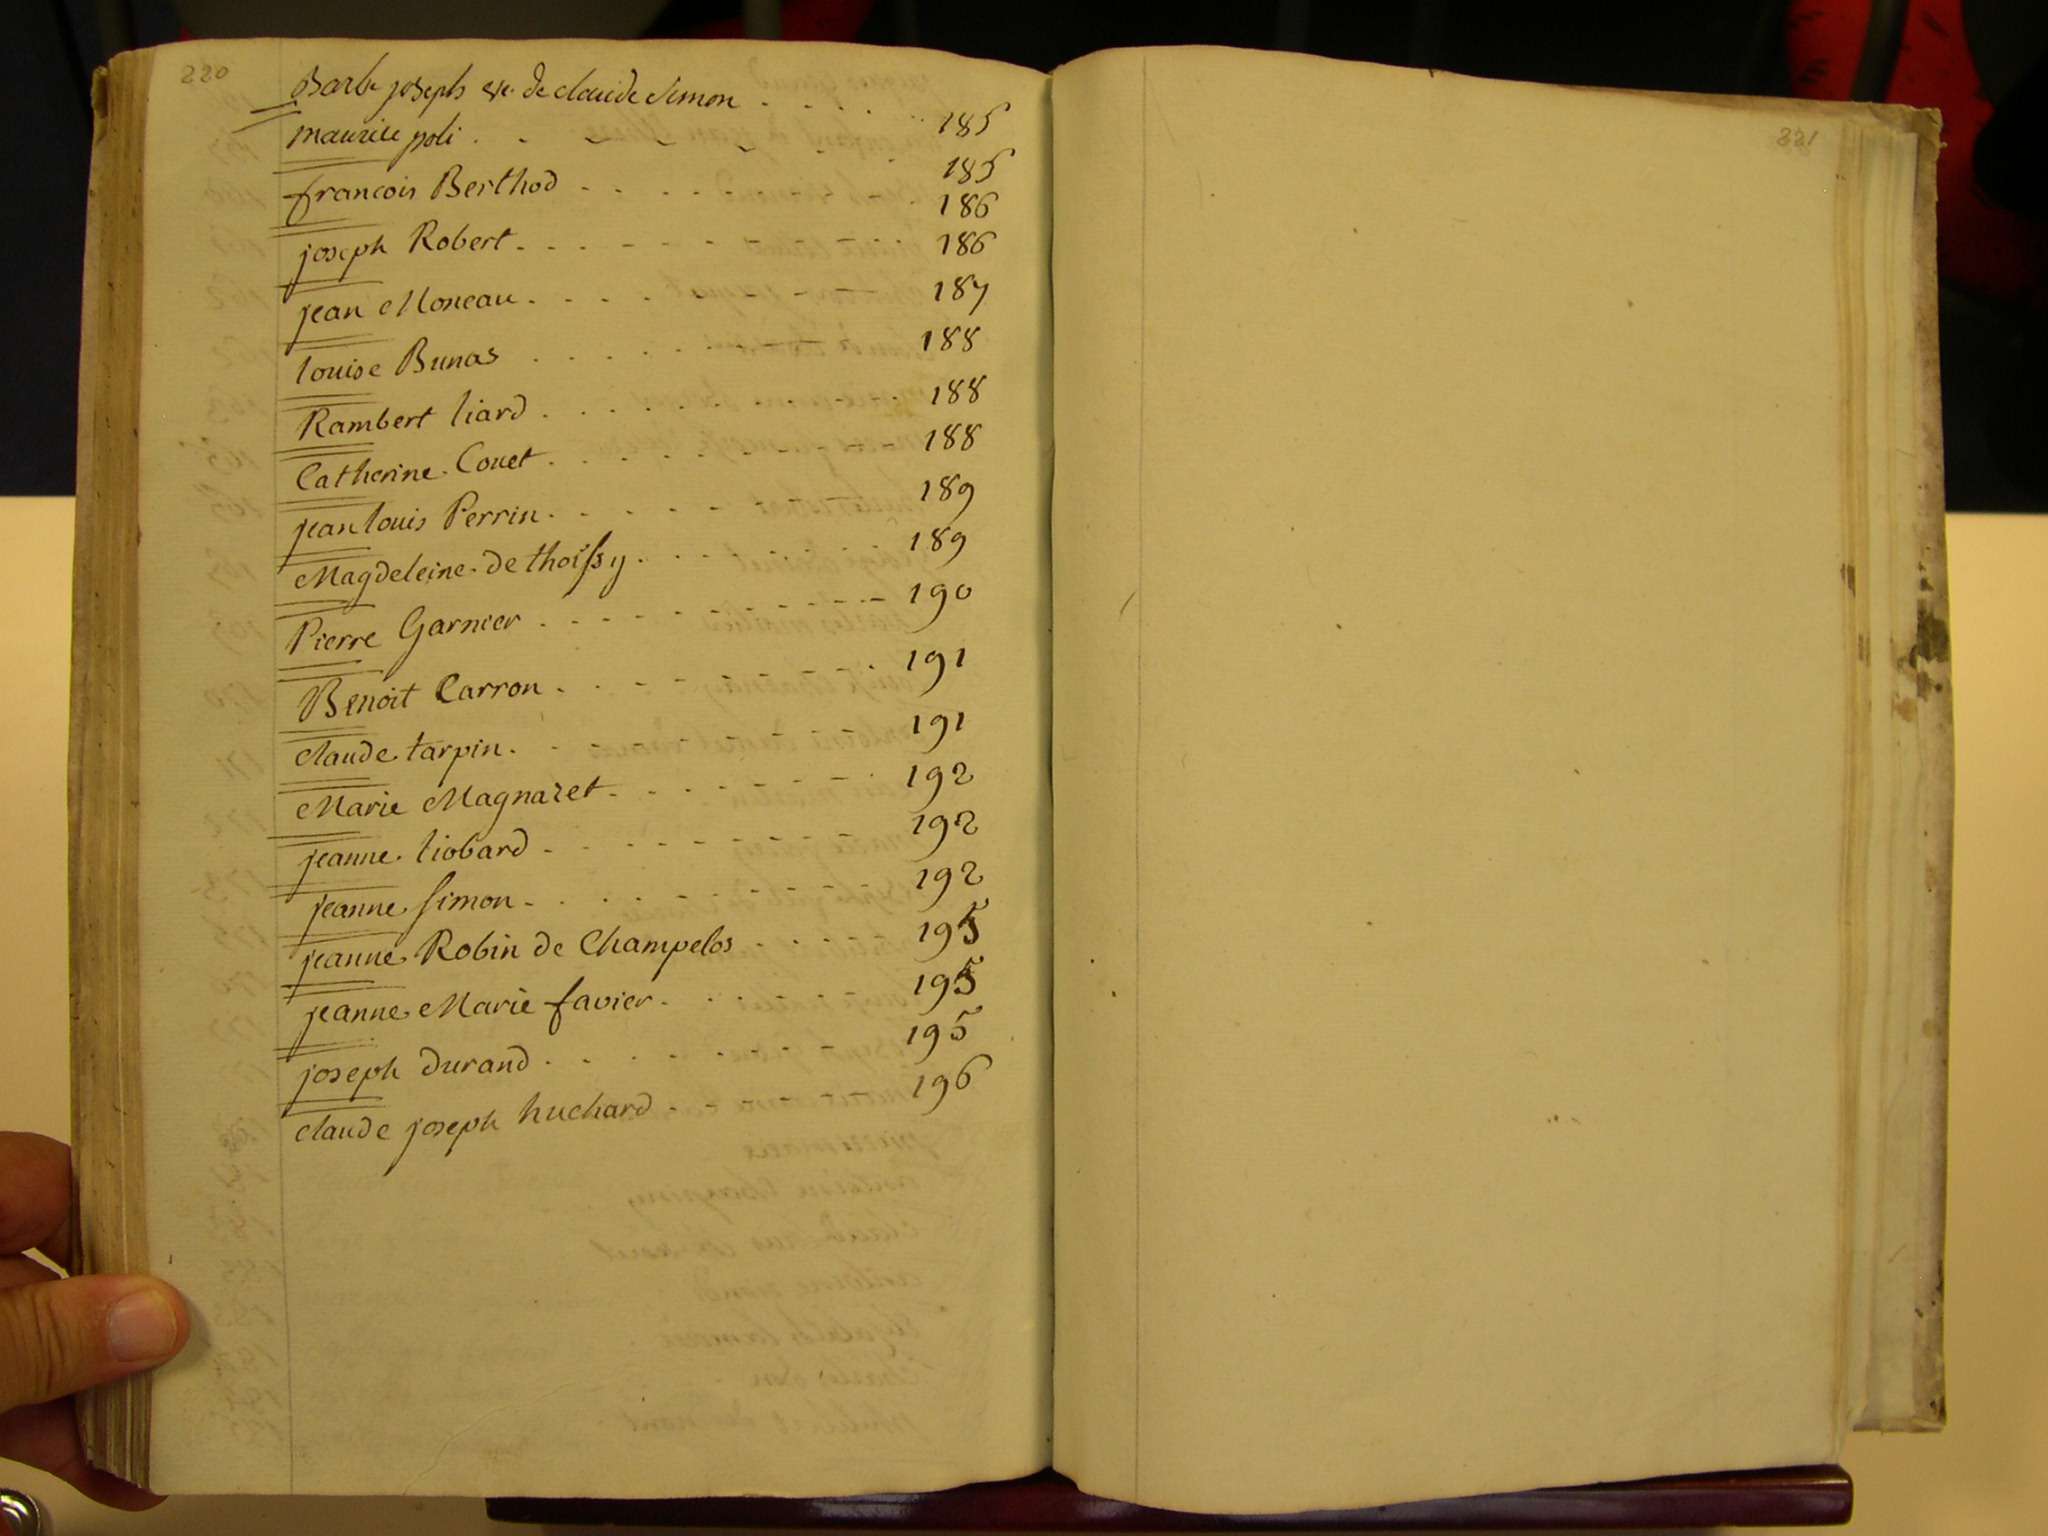 220
Barbe joseph ve. de claude Simon . . . . 185
maurice poli . . . . . . . 185
francois Berthod . . . . . . . 186
joseph Robert . . . . . . . 186
jean Moneau . . . . . . . 187
louise Bunas . . . . . . . 188
Rambert liard . . . . . . . 188
Catherine Couet . . . . . . . 188
jean louis Perrin . . . . . . 189
Magdeleine de thoissy . . . . . 189
Pierre Garnier . . . . . . . 190
Benoit Carron . . . . . . . 191
Claude tarpin . . . . . . . 191
Marie Magnaret . . . . . . 192
jeanne liobard . . . . . . . 192
jeanne simon . . . . . . . 192
jeanne Robin de Champelos . . . . 195
jeanne Marie favier . . . . . 195
joseph durand . . . . . . . 195
claude joseph huchard . . . . . 196
221